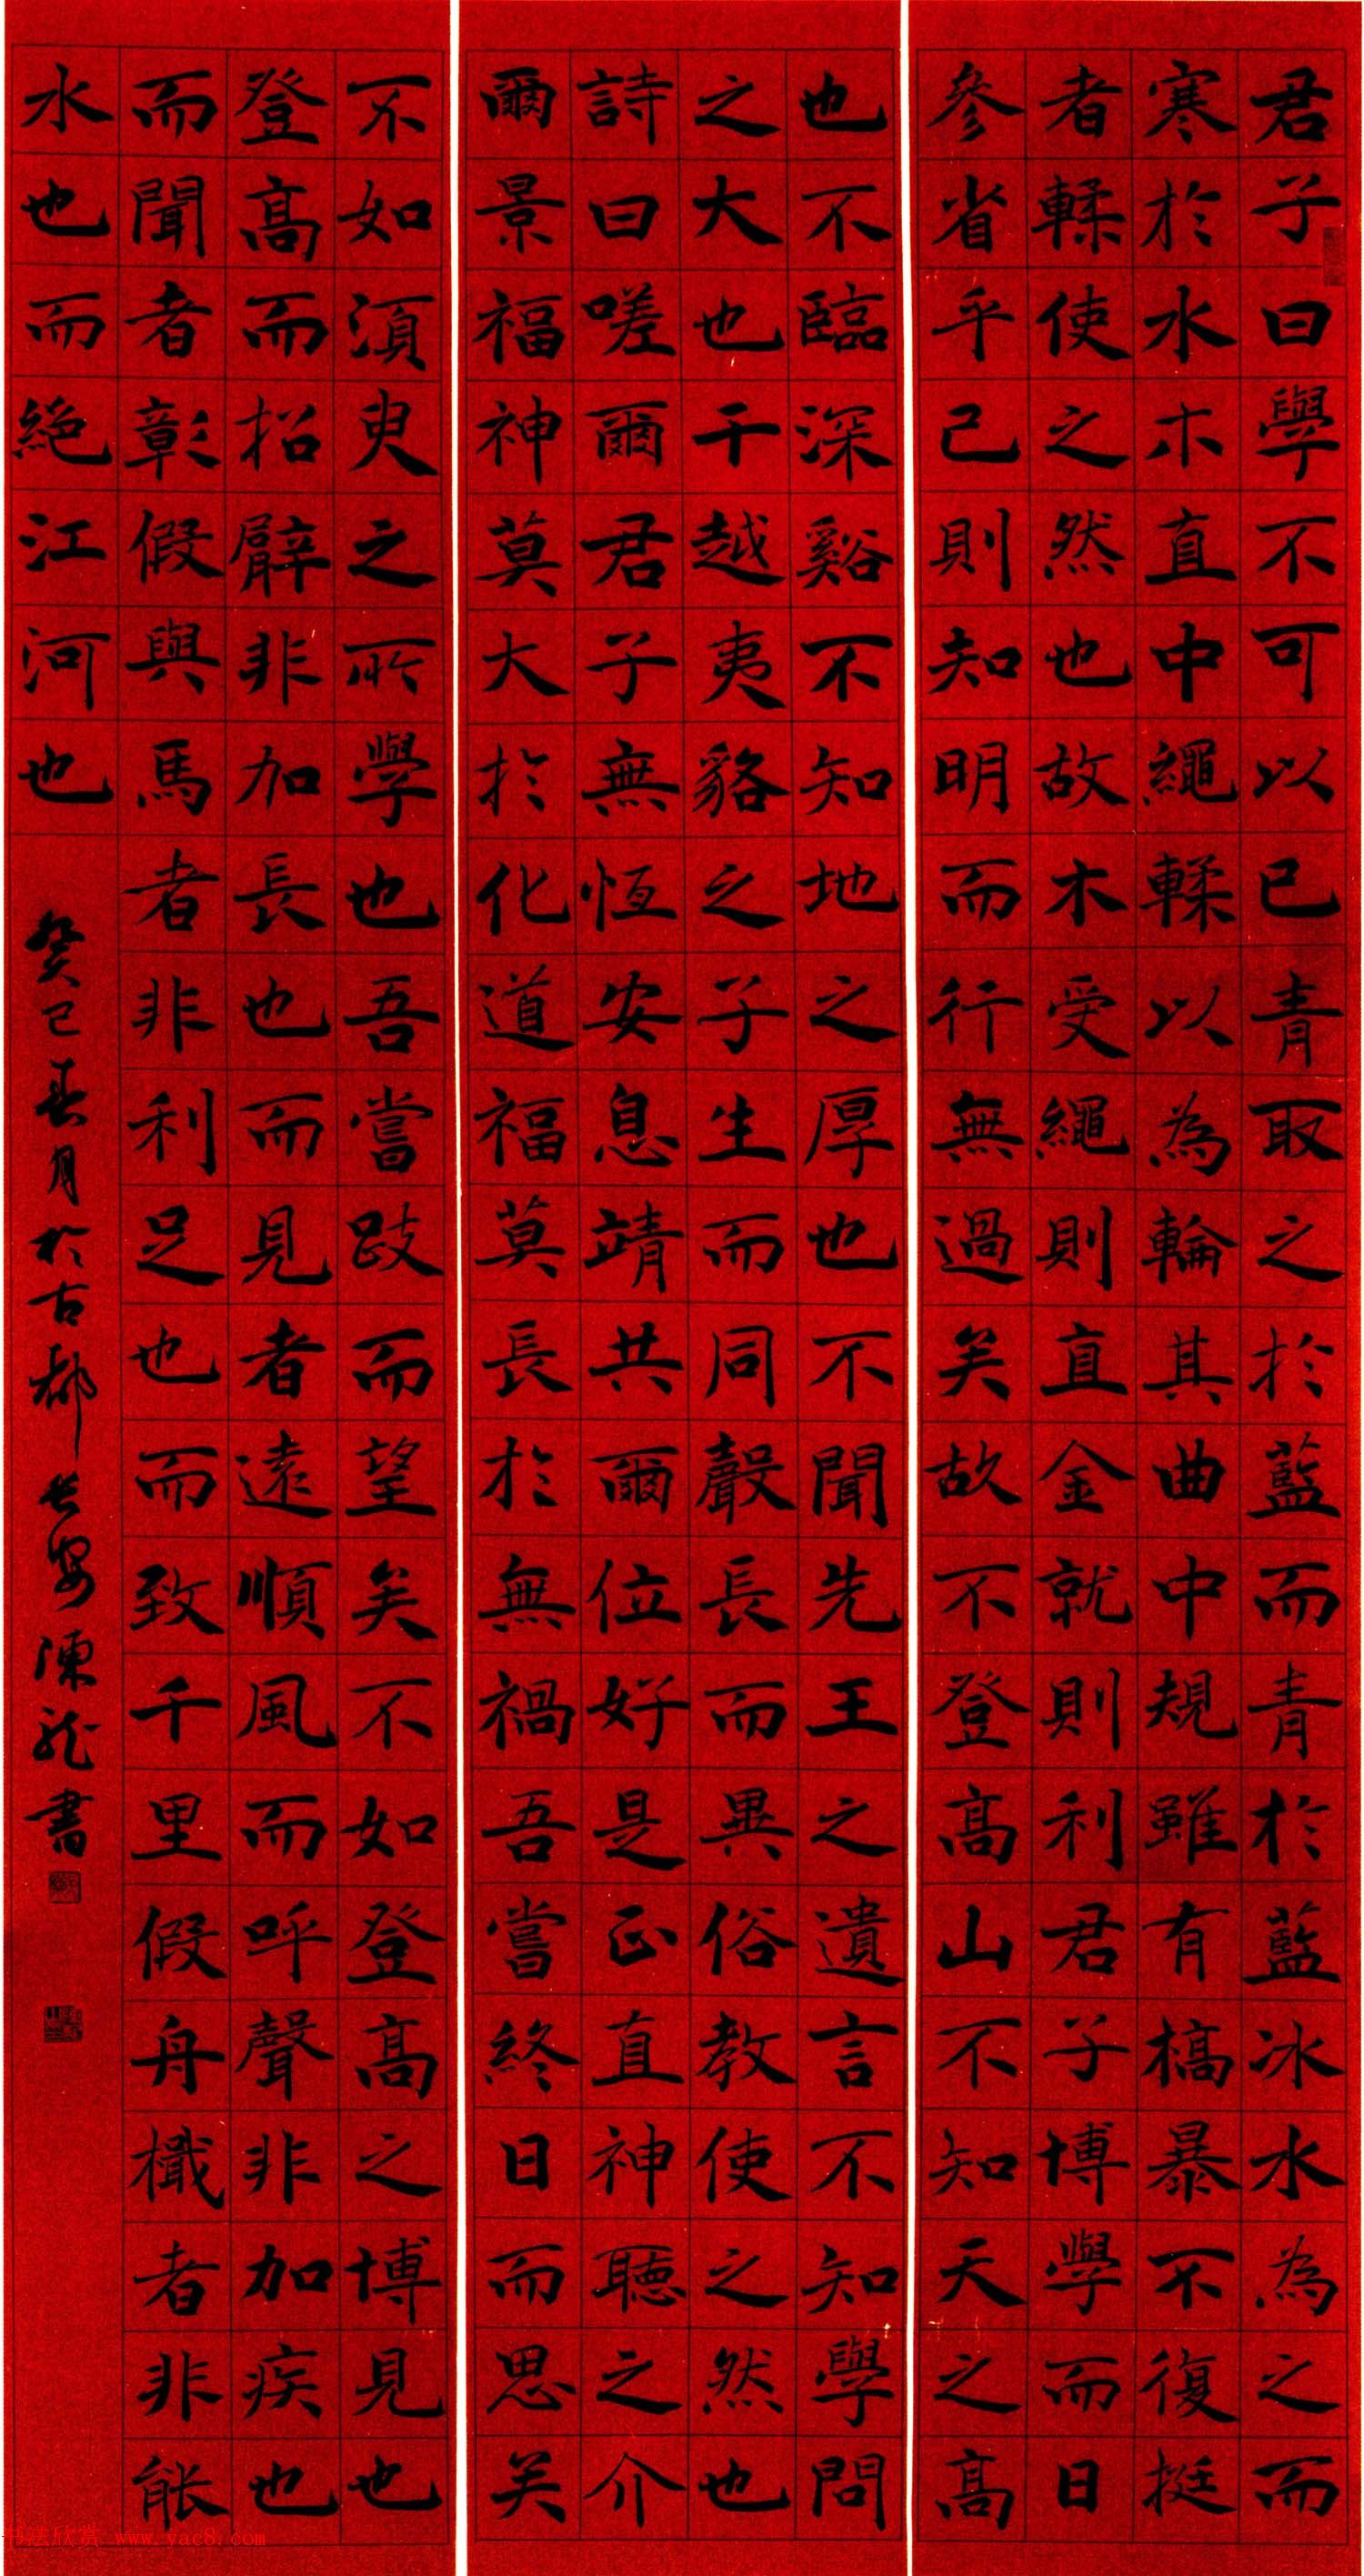 君子曰學不可以已青取之於藍而青於藍冰水為之而
寒於水木直中繩輮以為輪其曲中規雖有槁暴不復挺
者輮使之然也故木受繩則直金就則利君子博學而日
參省乎己則知明而行無過矣故不登高山不知天之高
也不臨深谿不知地之厚也不聞先王之遺言不知學問
之大也干越夷貉之子生而同聲長而異俗教使之然也
詩曰嗟爾君子無恆安息靖共爾位好是正直神聽之介
爾景福神莫大於化道福莫長於無禍吾嘗終日而思矣
不如須臾之所學也吾嘗跂而望矣不如登高之博見也
登高而招臂非加長也而見者遠順風而呼聲非加疾也
而聞者彰假輿馬者非利足也而致千里假舟檝者非能
水也而絕江河也
癸巳春月於古都長安陳龍書
书法欣赏 www.yac8.com